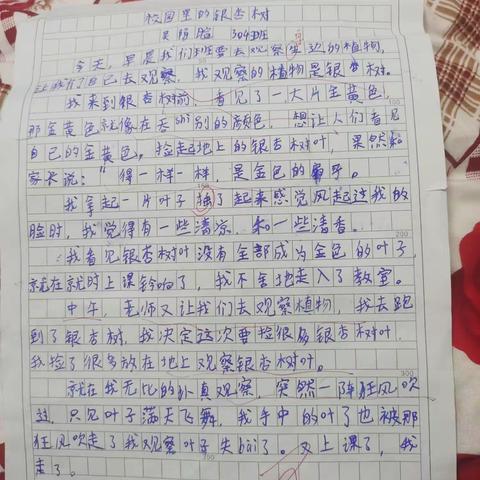 校园里的银杏树
304班
今天，早晨我们班要去观察身边的植物，
让我们自己去观察，我观察的植物是银杏树。
我来到银杏树前，看见了一大片金黄色，
那金黄色就像在吞shì别的颜色，想让人们看见
自己的金黄色。捡起地上的银杏树叶，果然和
家长说："得一样一样，是金色的扇子。
我拿起一片叶子扇了起来感觉风起过我的
脸时，我觉得有一些清凉、和一些清香。
我看见银杏树叶没有全部成为金色的叶子，
就在就时上课铃响了，我不舍地走入了教室。
中午，老师又让我们去观察植物，我去跑
到了银杏树，我决定这次要捡很多银杏树叶，
我捡了很多放在地上观察银杏树叶。
就在我无比的认真观察，突然一阵狂风吹
过，只见叶子满天飞舞，我手中的叶子也被那
狂风吹走了我观察叶子失bài了。又上课了，我
走了。
100
200
300